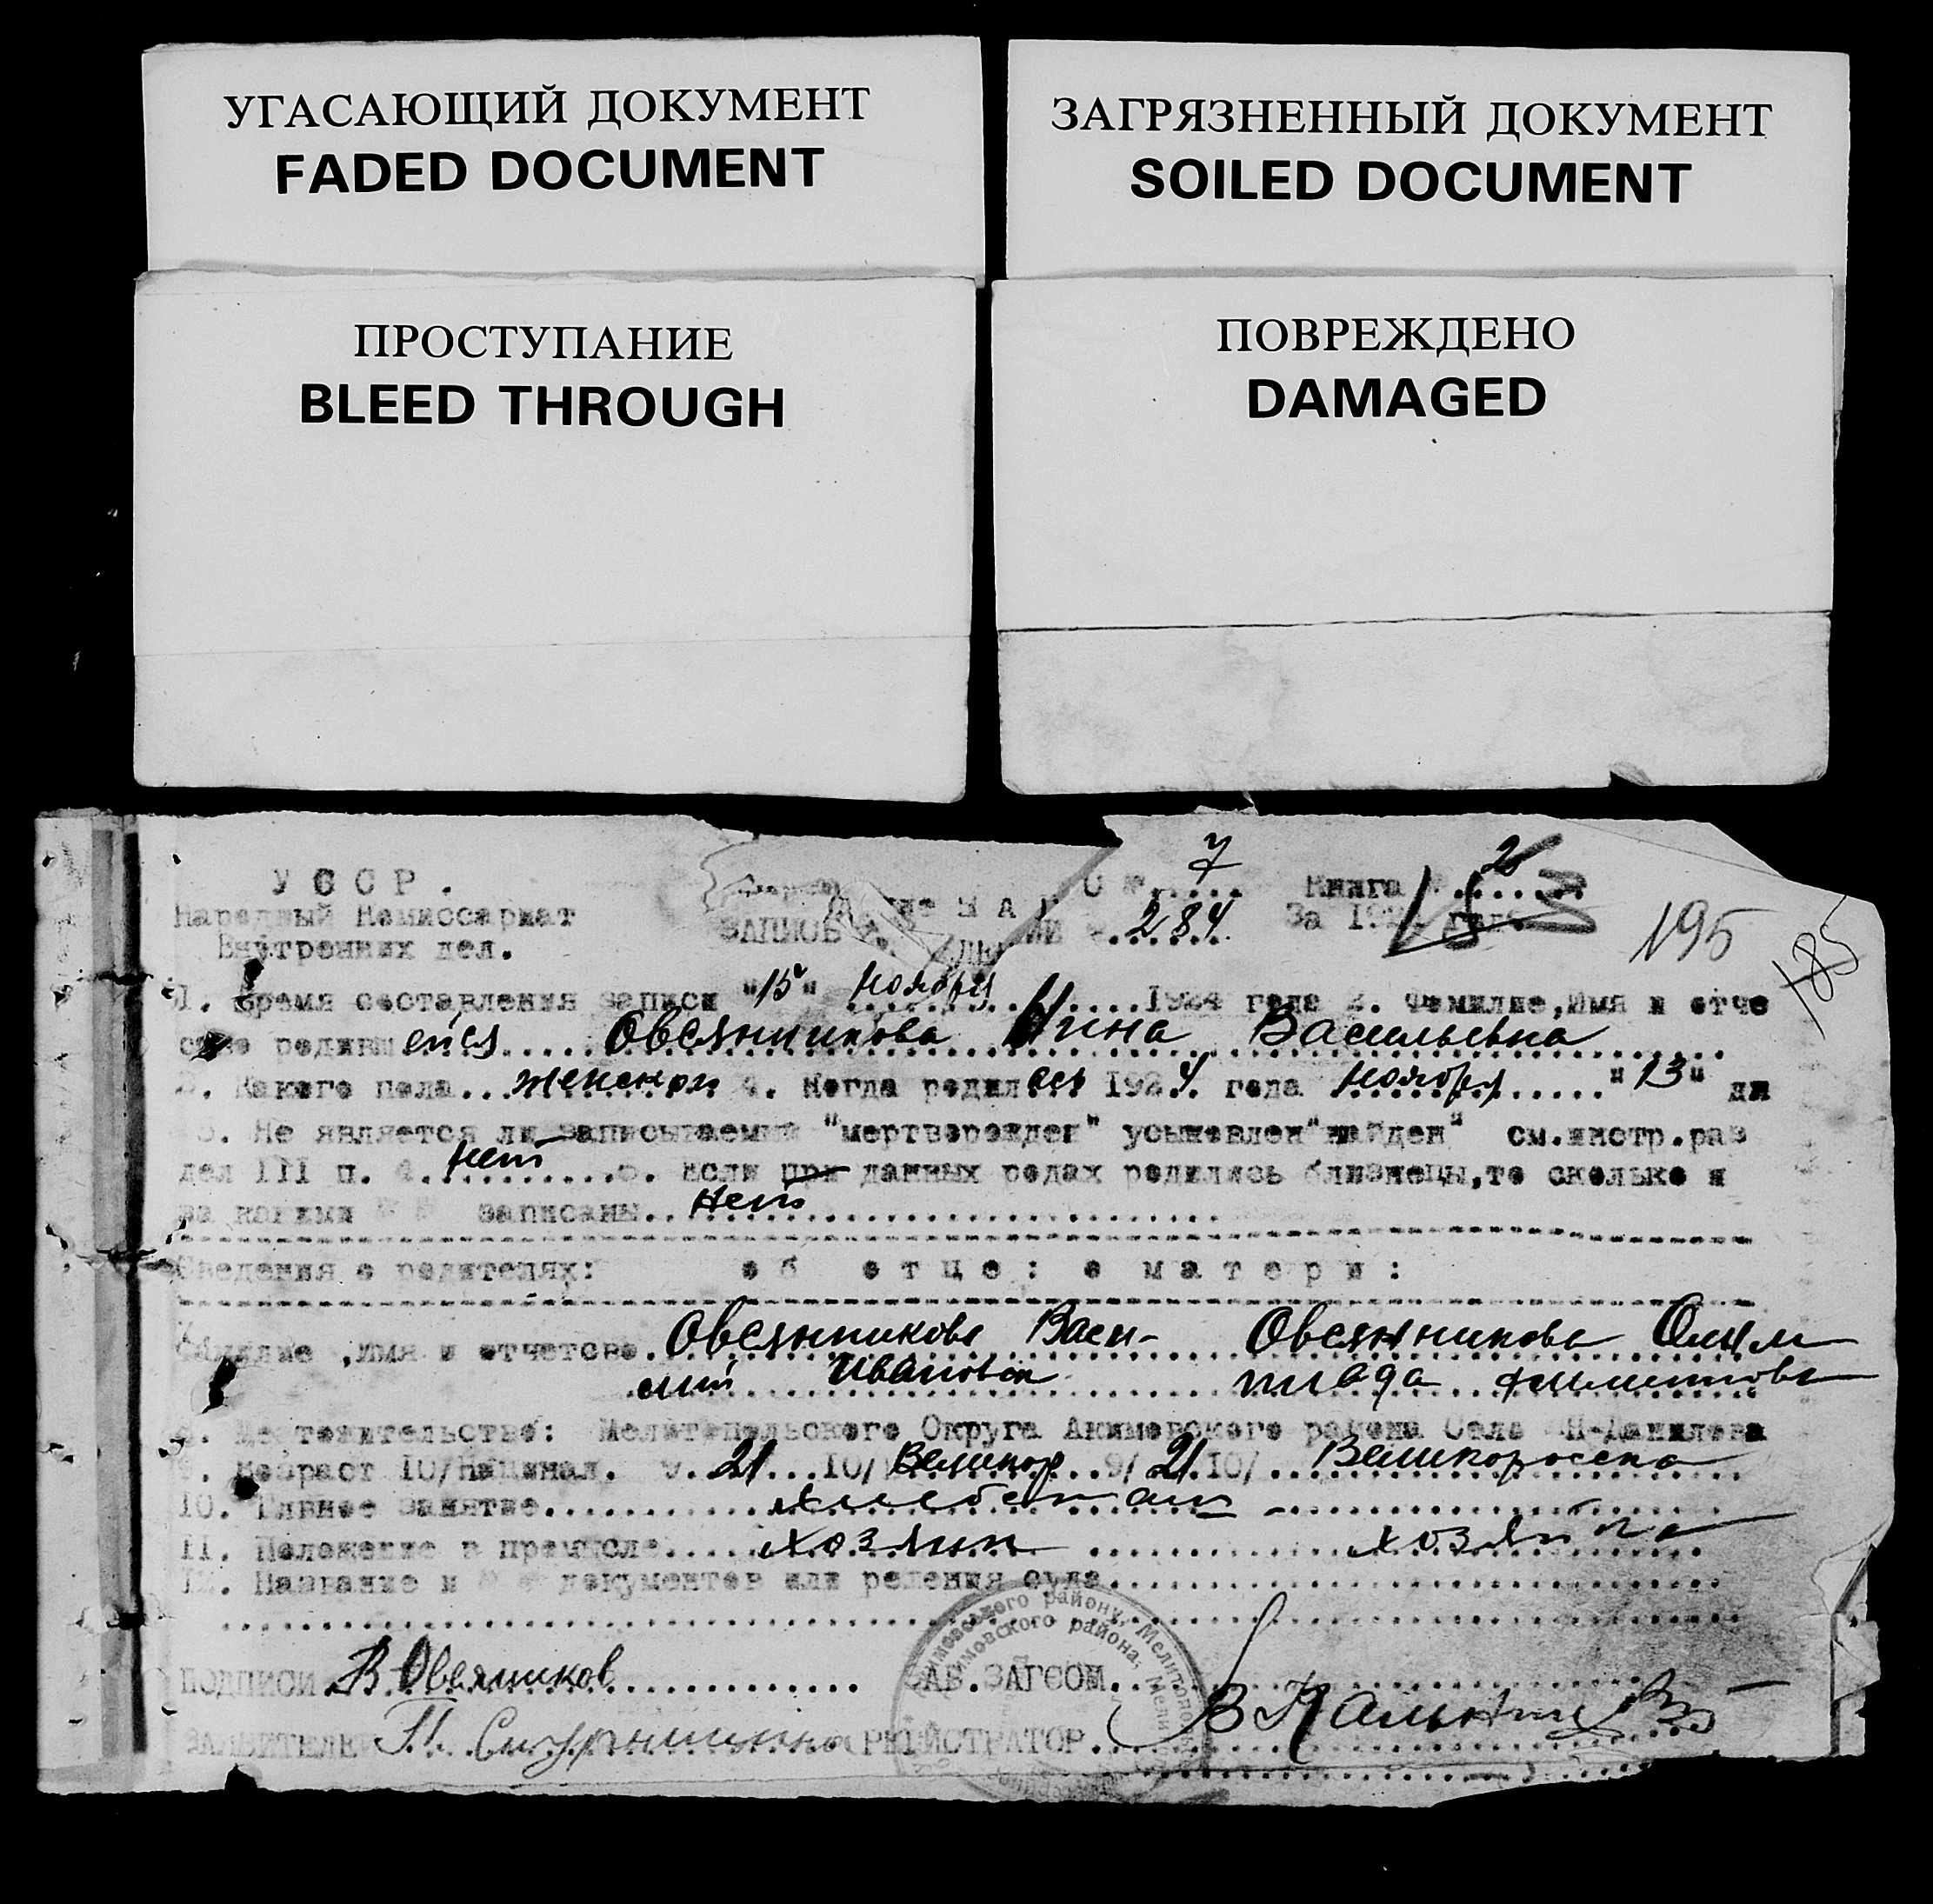 УГАСАЮЩИЙ ДОКУМЕНТ
FADED DOCUMENT
ЗАГРЯЗНЕННЫЙ ДОКУМЕНТ
SOILED DOCUMENT
ПРОСТУПАНИЕ
BLEED THROUGH
ПОВРЕЖДЕНО
DAMAGED
УССР. 7 Книга 2
Народный Комиссариат 284 За 192 года 195
Внутренних дел. 185
1. Время составления записи "15" ноября 1924 года 2. Фамилие, Имя и отче
ство родившейся Овсянникова Нина Васильевна
3. Какого пола женского 4. Когда родилась 1924. года ноября "13" дня
5. Не является ли записываемый "мертворожден" усыновлен "найден" см.инстр.раз
дел III п. 4. нет 6. Если при данных родах родились близнецы,то сколько и
за какими №№ записаны нет
Сведения о родителях: об отце: о матери:
Фамилие ,имя и отчетсво. Овсянников Васи- Овсянникова Олим
лий Иванович пиада Филиппов
8. Местожительство: Мелитопольского Округа Акимовского района Села Н-Данилова
9. Возраст 10/Национал. 9. 21 10/ Великор 9/ 21 10/ Великоросска
10. Главное занятие хлебопаш
11. Положение в промысле хозяин хозяйка
12. Название и №№ документов или решения суда
ПОДПИСИ В Овсяников ЗАВ. ЗАГСОМ
ЗАЯВИТЕЛЕЙ РЕГИСТРАТОР
Акимовського району, Мелитопо
Акимовского района, Мели